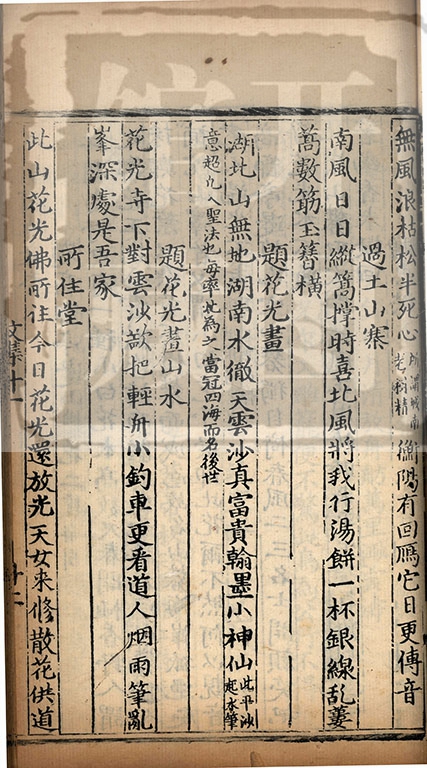 無風浪枯松半死心城南老樹精衡陽有回鴈它日更傳音
過土山寨
南風日日縱篙撑時喜北風將我行湯餅一杯銀線亂蔞
蒿數筋玉簪橫
題花光畫
湖北山無地湖南水徹天雲沙真富貴翰墨小神仙此平沙遠水筆
意超凡入聖法也每率此為之當冠四海而名後世
題花光畫山水
花光寺下對雲沙欲把輕舟小釣車更看道人烟雨筆亂
峯深處是吾家
所住堂
此山花光佛所住今日花光還放光天女来修散花供道
文集十一
十二